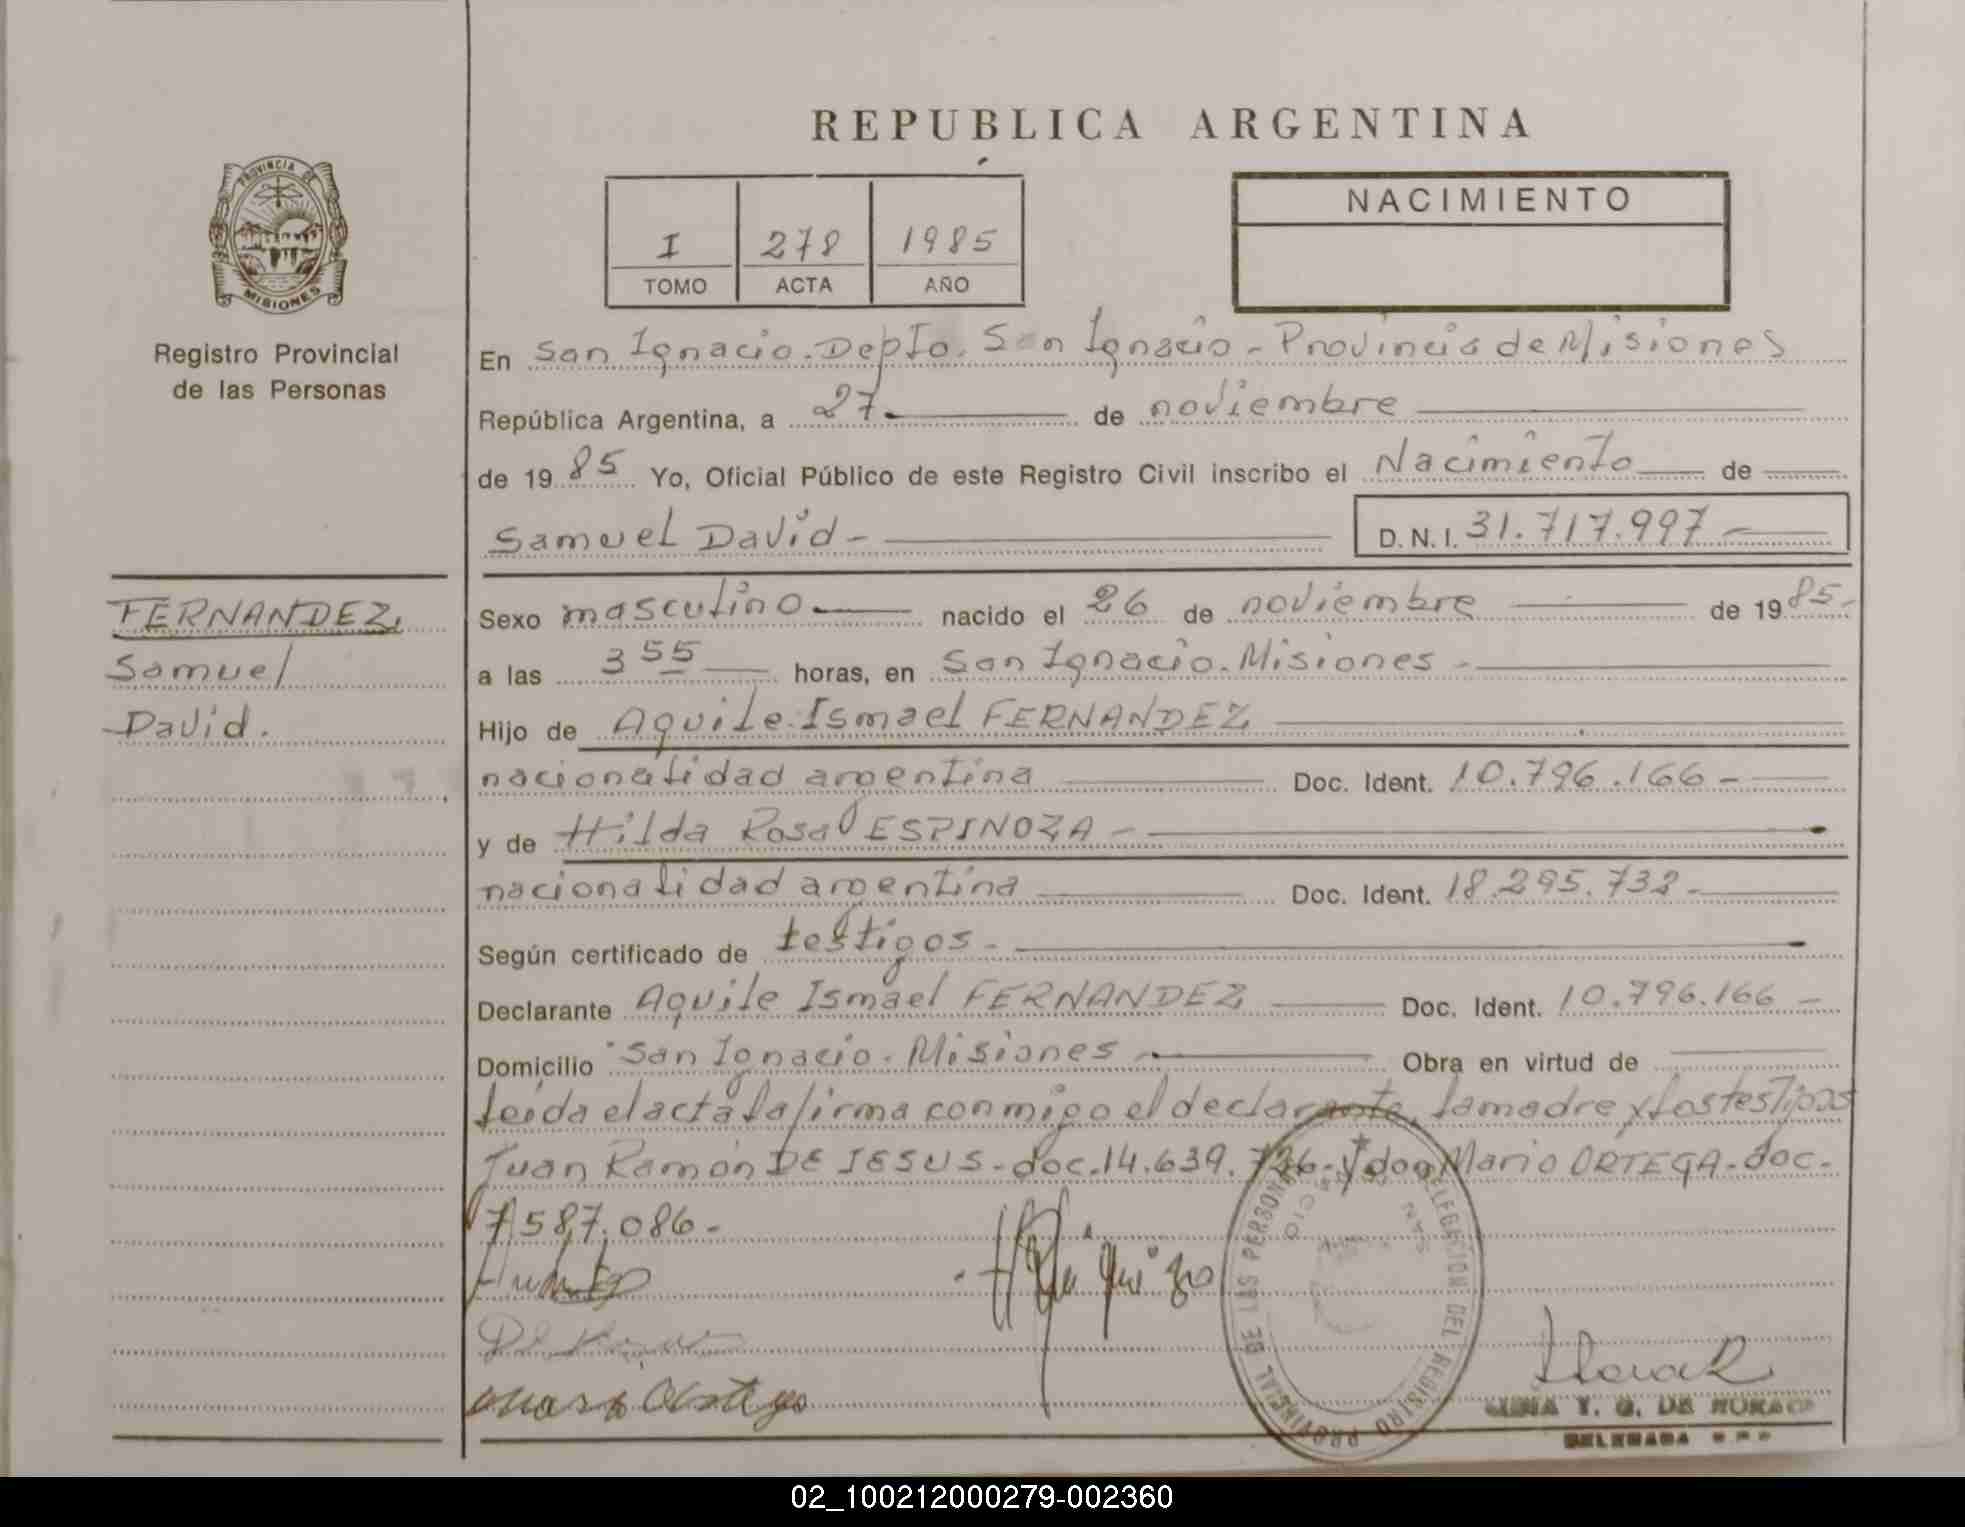 REPUBLICA ARGENTINA
PROVINCIA DE
MISIONES
Registro Provincial
de las Personas
I 278 1985
TOMO ACTA AÑO
NACIMIENTO
En San Ignacio. Depto. San Ignacio - Provincia de Misiones
República Argentina, a 27 de noviembre
de 1985 Yo, Oficial Público de este Registro Civil inscribo el Nacimiento de
Samuel David - D.N.I. 31.717.997 -
FERNANDEZ,
Samuel
David.
Sexo masculino nacido el 26 de noviembre de 1985-
a las 3 55 horas, en San Ignacio. Misiones -
Hijo de Aquile Ismael FERNANDEZ
nacionalidad argentina Doc. Ident. 10.796.166 -
y de Hilda Rosa ESPINOZA -
nacionalidad argentina Doc. Ident. 18.295.732 -
Según certificado de testigos -
Declarante Aquile Ismael FERNANDEZ Doc. Ident. 10.796.166 -
Domicilio San Ignacio. Misiones - Obra en virtud de
leída el acta la firma conmigo el declarante, la madre y los testigos
Juan Ramón DE JESUS - doc. 14.639.726 - y don Mario ORTEGA - doc -
7.587.086 -
DELEGACION DEL REGISTRO PROVINCIAL DE LAS PERSONAS
Y. G. DE
DELEGADA
02_100212000279-002360